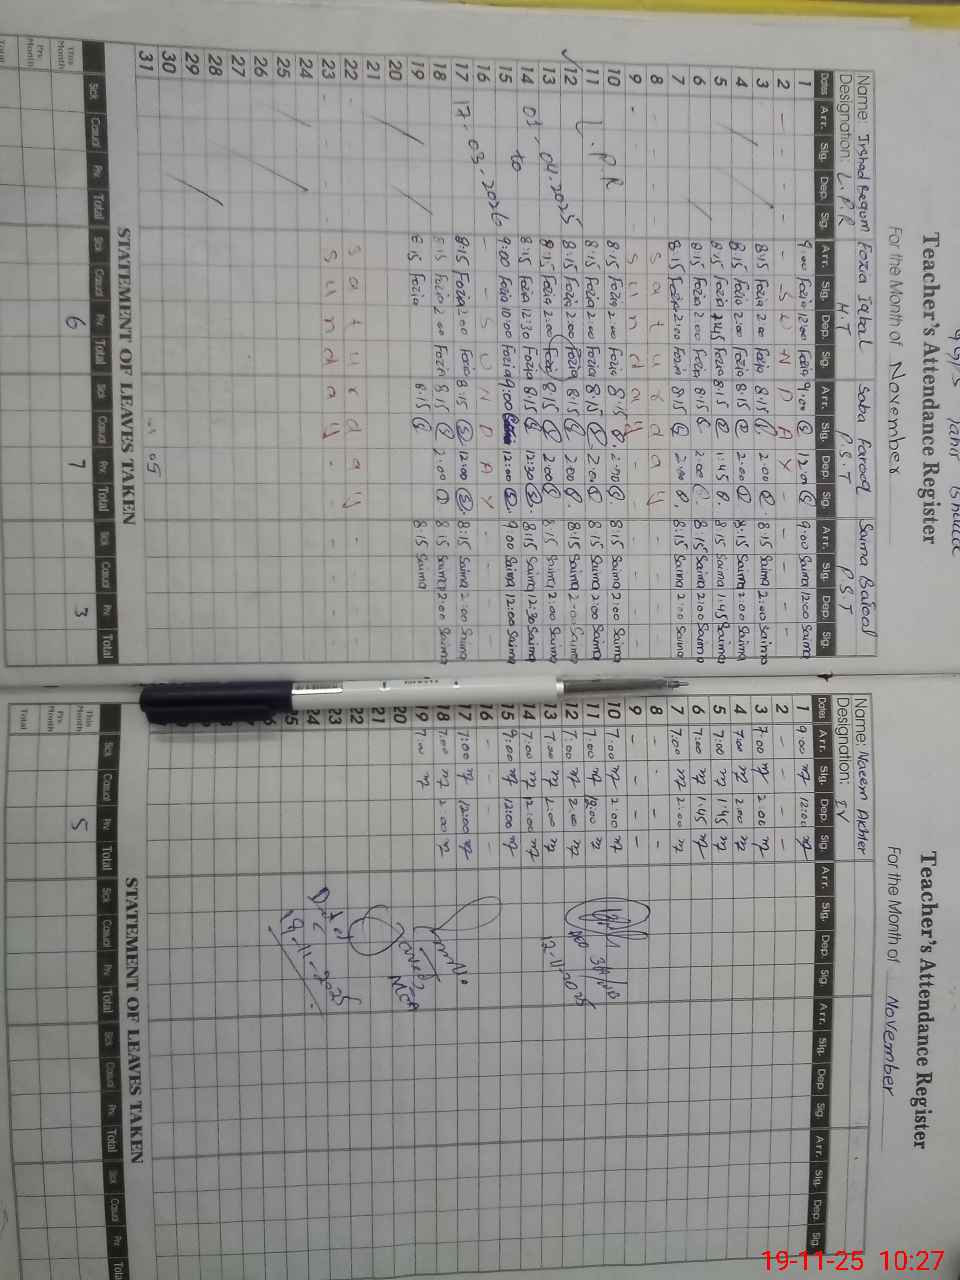 Teacher's Attendance Register
For the Month of November
Name: Irshad Begum Fozia Iqbal Saba Farooq Saima Batool
Designation: L.P.R H.T P.S.T P.S.T
Dates Arr. Sig. Dep. Sig. Arr. Sig. Dep. Sig. Arr. Sig. Dep. Sig. Arr. Sig. Dep. Sig.
1 9:00 Fozia 12:00 Fozia 9:00 12:00 9:00 Saima 12:00 Saima
2 - - - - - S U N D A Y - - - - -
3 8:15 Fozia 2:00 Fozia 8:15 2:00 8:15 Saima 2:00 Saima
4 8:15 Fozia 2:00 Fozia 8:15 2:00 8:15 Saima 2:00 Saima
5 8:15 Fozia 1:45 Fozia 8:15 1:45 8:15 Saima 1:45 Saima
6 8:15 Fozia 2:00 Fozia 8:15 2:00 8:15 Saima 2:00 Saima
7 8:15 Fozia 2:00 Fozia 8:15 2:00 8:15 Saima 2:00 Saima
8 - - - - S a t u r d a y - - - -
9 - - - - S u n d a y - - - -
10 L.P.R 8:15 Fozia 2:00 Fozia 8:15 2:00 8:15 Saima 2:00 Saima
11 8:15 Fozia 2:00 Fozia 8:15 2:00 8:15 Saima 2:00 Saima
12 03-04-2025 8:15 Fozia 2:00 Fozia 8:15 2:00 8:15 Saima 2:00 Saima
13 8:15 Fozia 2:00 Fozia 8:15 2:00 8:15 Saima 2:00 Saima
14 to 8:15 Fozia 12:30 Fozia 8:15 12:30 8:15 Saima 12:30 Saima
15 9:00 Fozia 10:00 Fozia 9:00 12:00 9:00 Saima 12:00 Saima
16 17-03-2026 - - S U N D A Y - - - -
17 8:15 Fozia 2:00 Fozia 8:15 12:00 8:15 Saima 2:00 Saima
18 8:15 Fozia 2:00 Fozia 8:15 2:00 8:15 Saima 2:00 Saima
19 8:15 Fozia 8:15 8:15 Saima
20
21
22 S a t u r d a y - - - -
23 - - - - S u n d a y - - - -
24
25
26
27
28
29
30
31
STATEMENT OF LEAVES TAKEN
Sick Casual Prv. Total Sick Casual Prv. Total Sick Casual Prv. Total Sick Casual Prv. Total
This Month 6 7 3
Prv. Month
Total
Teacher's Attendance Register
For the Month of November
Name: Naeem Akhter
Designation: IV
Dates Arr. Sig. Dep. Sig. Arr. Sig. Dep. Sig. Arr. Sig. Dep. Sig. Arr. Sig. Dep. Sig.
1 9:00 12:00
2 - - - -
3 7:00 2:00
4 7:00 2:00
5 7:00 1:45
6 7:00 1:45
7 7:00 2:00
8 - - - -
9 - - - -
10 7:00 2:00
11 7:00 12:00
12 7:00 2:00
13 7:00 2:00
12-11-2025
14 7:00 12:00
15 9:00 12:00
16 - - - -
17 7:00 12:00
18 7:00 2:00
19 7:00
MEA
20
21
22
23
24
Dated
19-11-2025
25
STATEMENT OF LEAVES TAKEN
Sick Casual Prv. Total Sick Casual Prv. Total Sick Casual Prv. Total Sick Casual Prv. Total
This Month 5
Prv. Month
Total
19-11-25 10:27